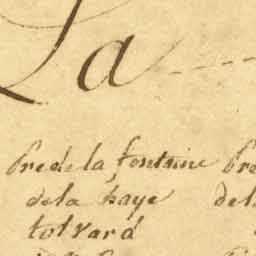 La
Pre de la fontaine Pre
de la haye del
totvard